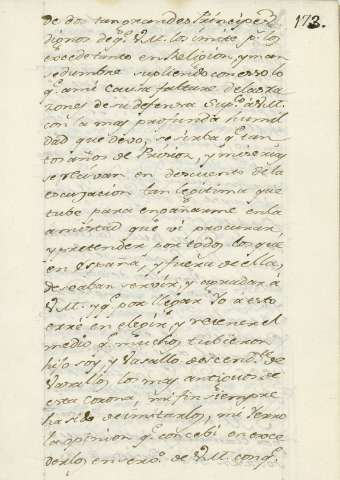 173.
de dos tan grandes Principes
dignos de q.e V.M. los imite p.s los
excede tanto en Religion, y man
sedumbre supliendo con esso lo
q.e a mi causa faltare de las ra
zones de su defensa Sup.co à V.M.
con la mas profunda humil
dad que devo, se sirba q.e tan
tos años de Prision, y miserias
se reciban en descuento de la
escusacion tan legitima que
tube para engañarme en la
amistad que vi procurar,
y pretender por todos los que
en España, y fuera de ella,
deseaban servir, y agradar à
V.M. y q.e por llegar Yo à esto
erré en elegir, y retener el
medio q.e muchos tubieron
hijo soy, y Vasallo descend.te de
Vasallos los mas antiguos de
esta Corona, mi fin siempre
ha sido de imitarlos, mi Yerro
la opinion q.e concebi en exce
derlos en serv.o de V.M. con q.e